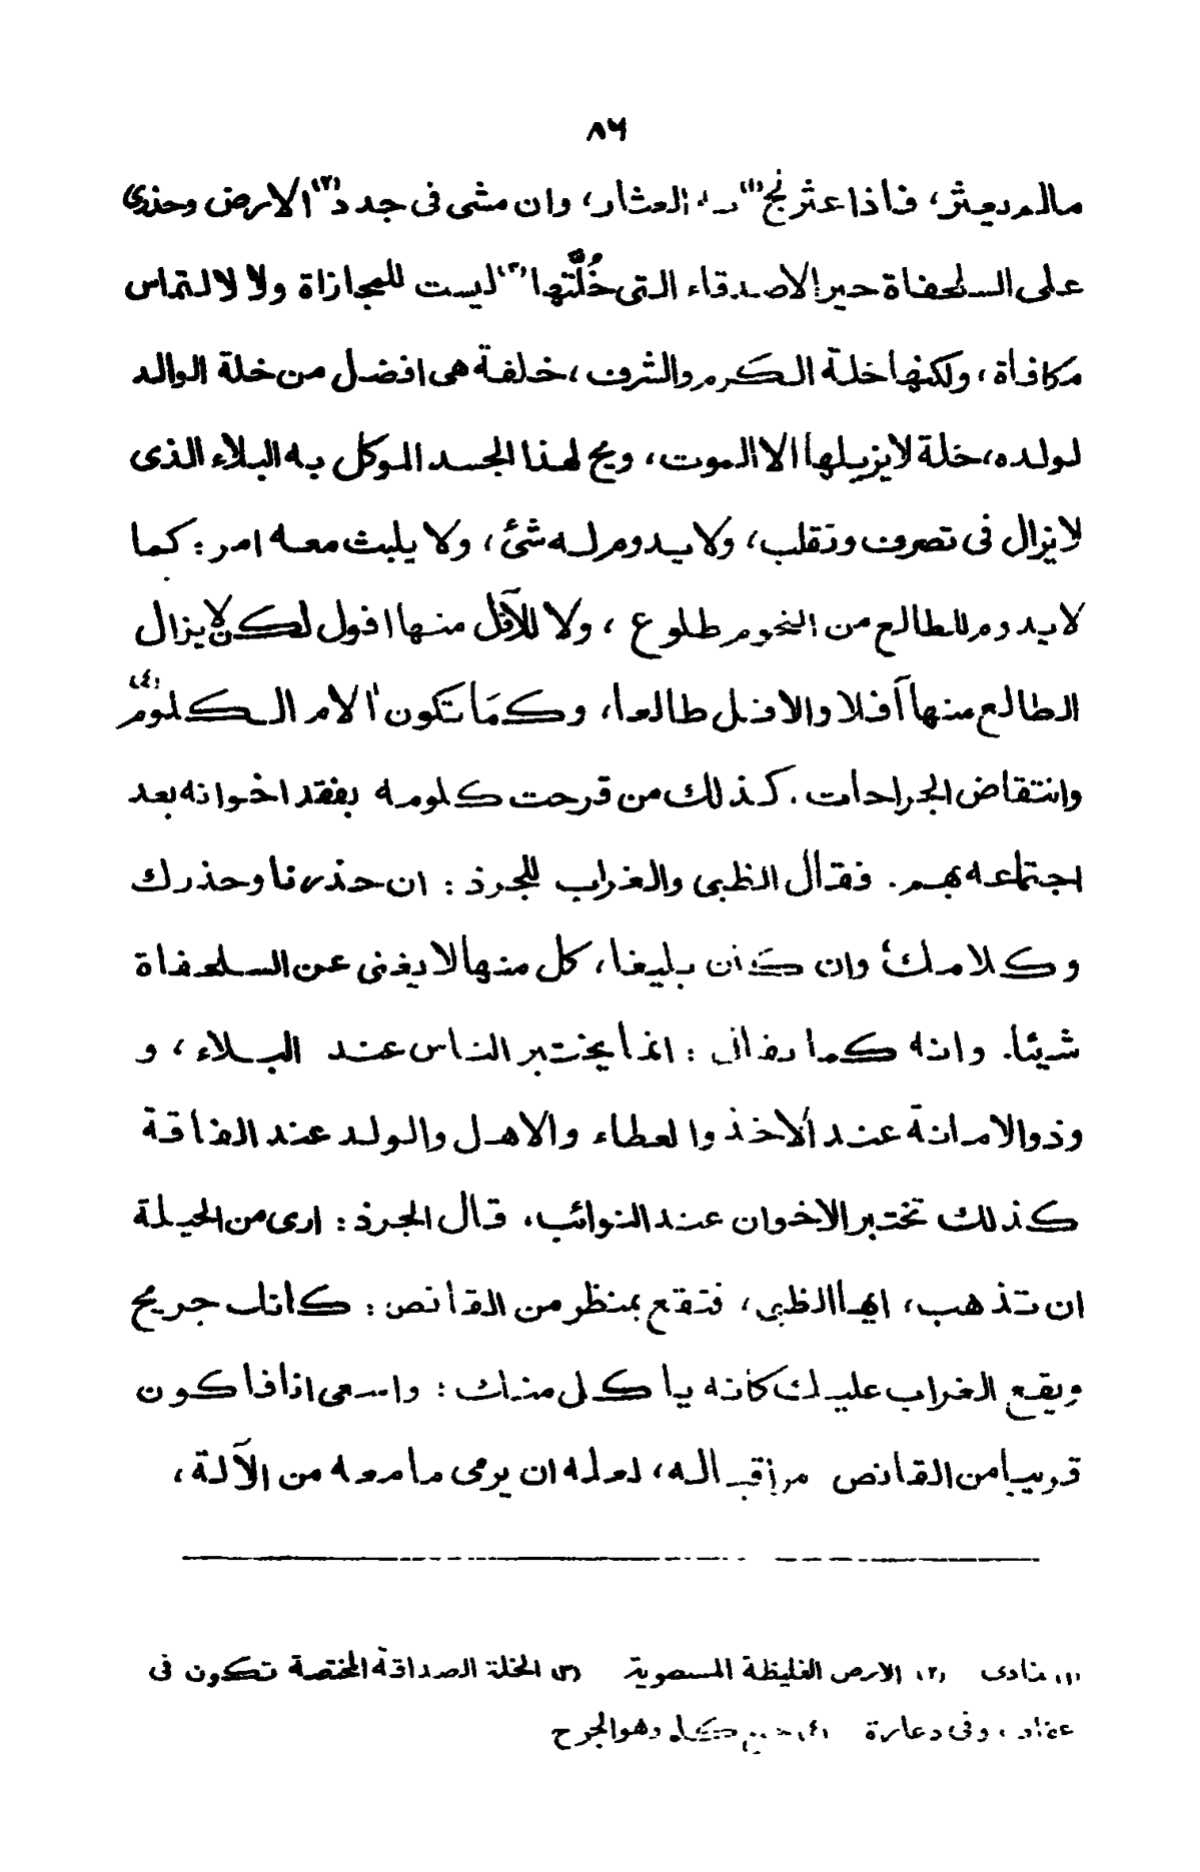 ٨٦
مالم يعثر، فاذا عثر لج(١) به العثار، وان مشى فى جدد(٢) الارض وحذرى
على السلحفاة خير الاصدقاء التى خُلَّتها(٣) ليست للمجازاة ولا لالتماس
مكافأة، ولكنها خلة الكرم والشرف، خلفة هى افضل من خلة الوالد
لولده، خلة لا يزيلها الا الموت، ويح لهذا الجسد الموكل به البلاء الذى
لا يزال فى تصرف وتقلب، ولا يدوم له شئ، ولا يلبث معه امر: كما
لا يدوم للطالع من النجوم طلوع، ولا للآفل منها افول لكن لا يزال
الطالع منها آفلا والافل طالعا، وكمَا تَكون آلام الكلوم(٤)
وانتقاض الجراحات. كذلك من قرحت كلومه بفقد اخوانه بعد
اجتماعه بهم. فقال الظبى والغراب للجرذ: ان حذرنا وحذرك
وكلامك، وان كان بليغا، كل منها لا يغنى عن السلحفاة
شيئا. وانه كما يقال: انما يختبر الناس عند البلاء، و
وذو الامانة عند الأخذ والعطاء والاهل والولد عند الفاقة
كذلك تختبر الاخوان عند النوائب. قال الجرذ: ارى من الحيلة
ان تذهب، ايها الظبى، فتقع بمنظر من القانص: كانك جريح
ويقع الغراب عليك كانه ياكل منك: واسعى انا فاكون
قريبا من القانص مراقبا له، لعله ان يرمى ما معه من الآلة،
(١) تمادى (٢) الارض الغليظة المستوية (٣) الخلة الصداقة المختصة تكون فى
عفاف، وفى دعارة (٤) جمع كلم وهو الجرح